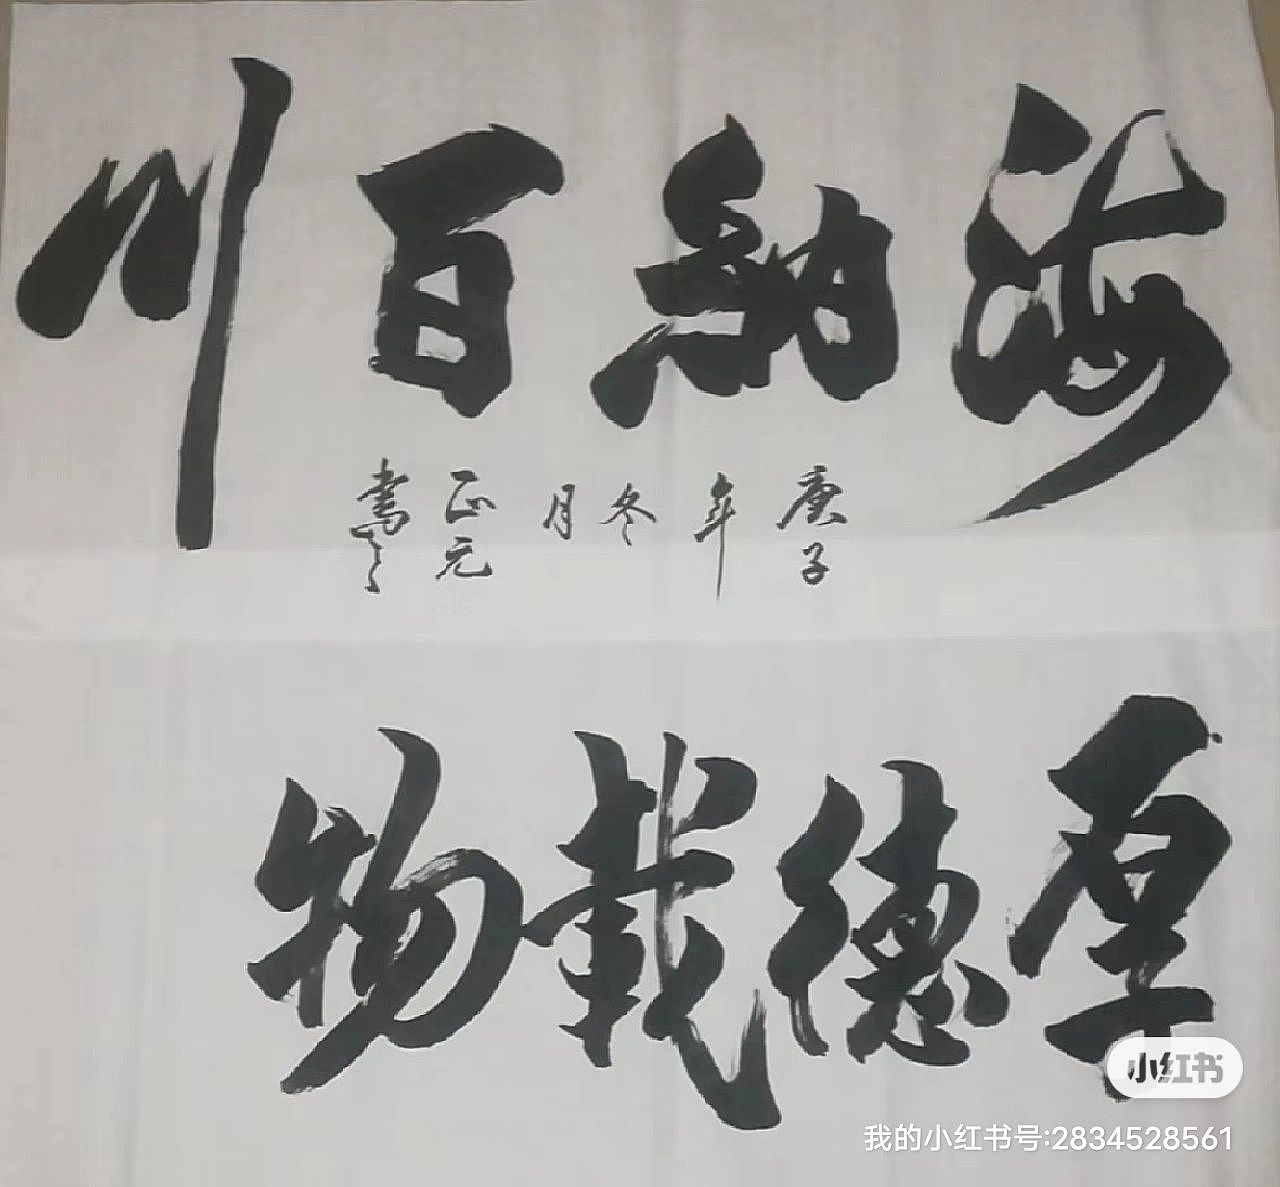 海納百川
庚子年冬月正元書
厚德載物
小红书
我的小红书号:2834528561